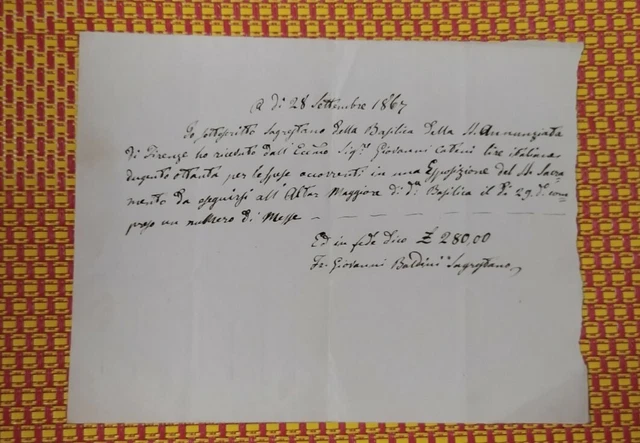 A dì 28 Settembre 1867
Io sottoscritto Sagrestano della Basilica della SS. Annunziata
di Firenze ho ricevuto dall' Ecc̃mo Sig.r Giovanni lire italiane
dugento ottanta per le spese occorrenti in una Esposizione del SS. Sacra-
mento da eseguirsi all' Altar Maggiore di d.a Basilica il dì 29. d.o com-
preso un numero di Messe
Ed in fede dico £ 280,00
Fr. Giovanni Baldini Sagrestano